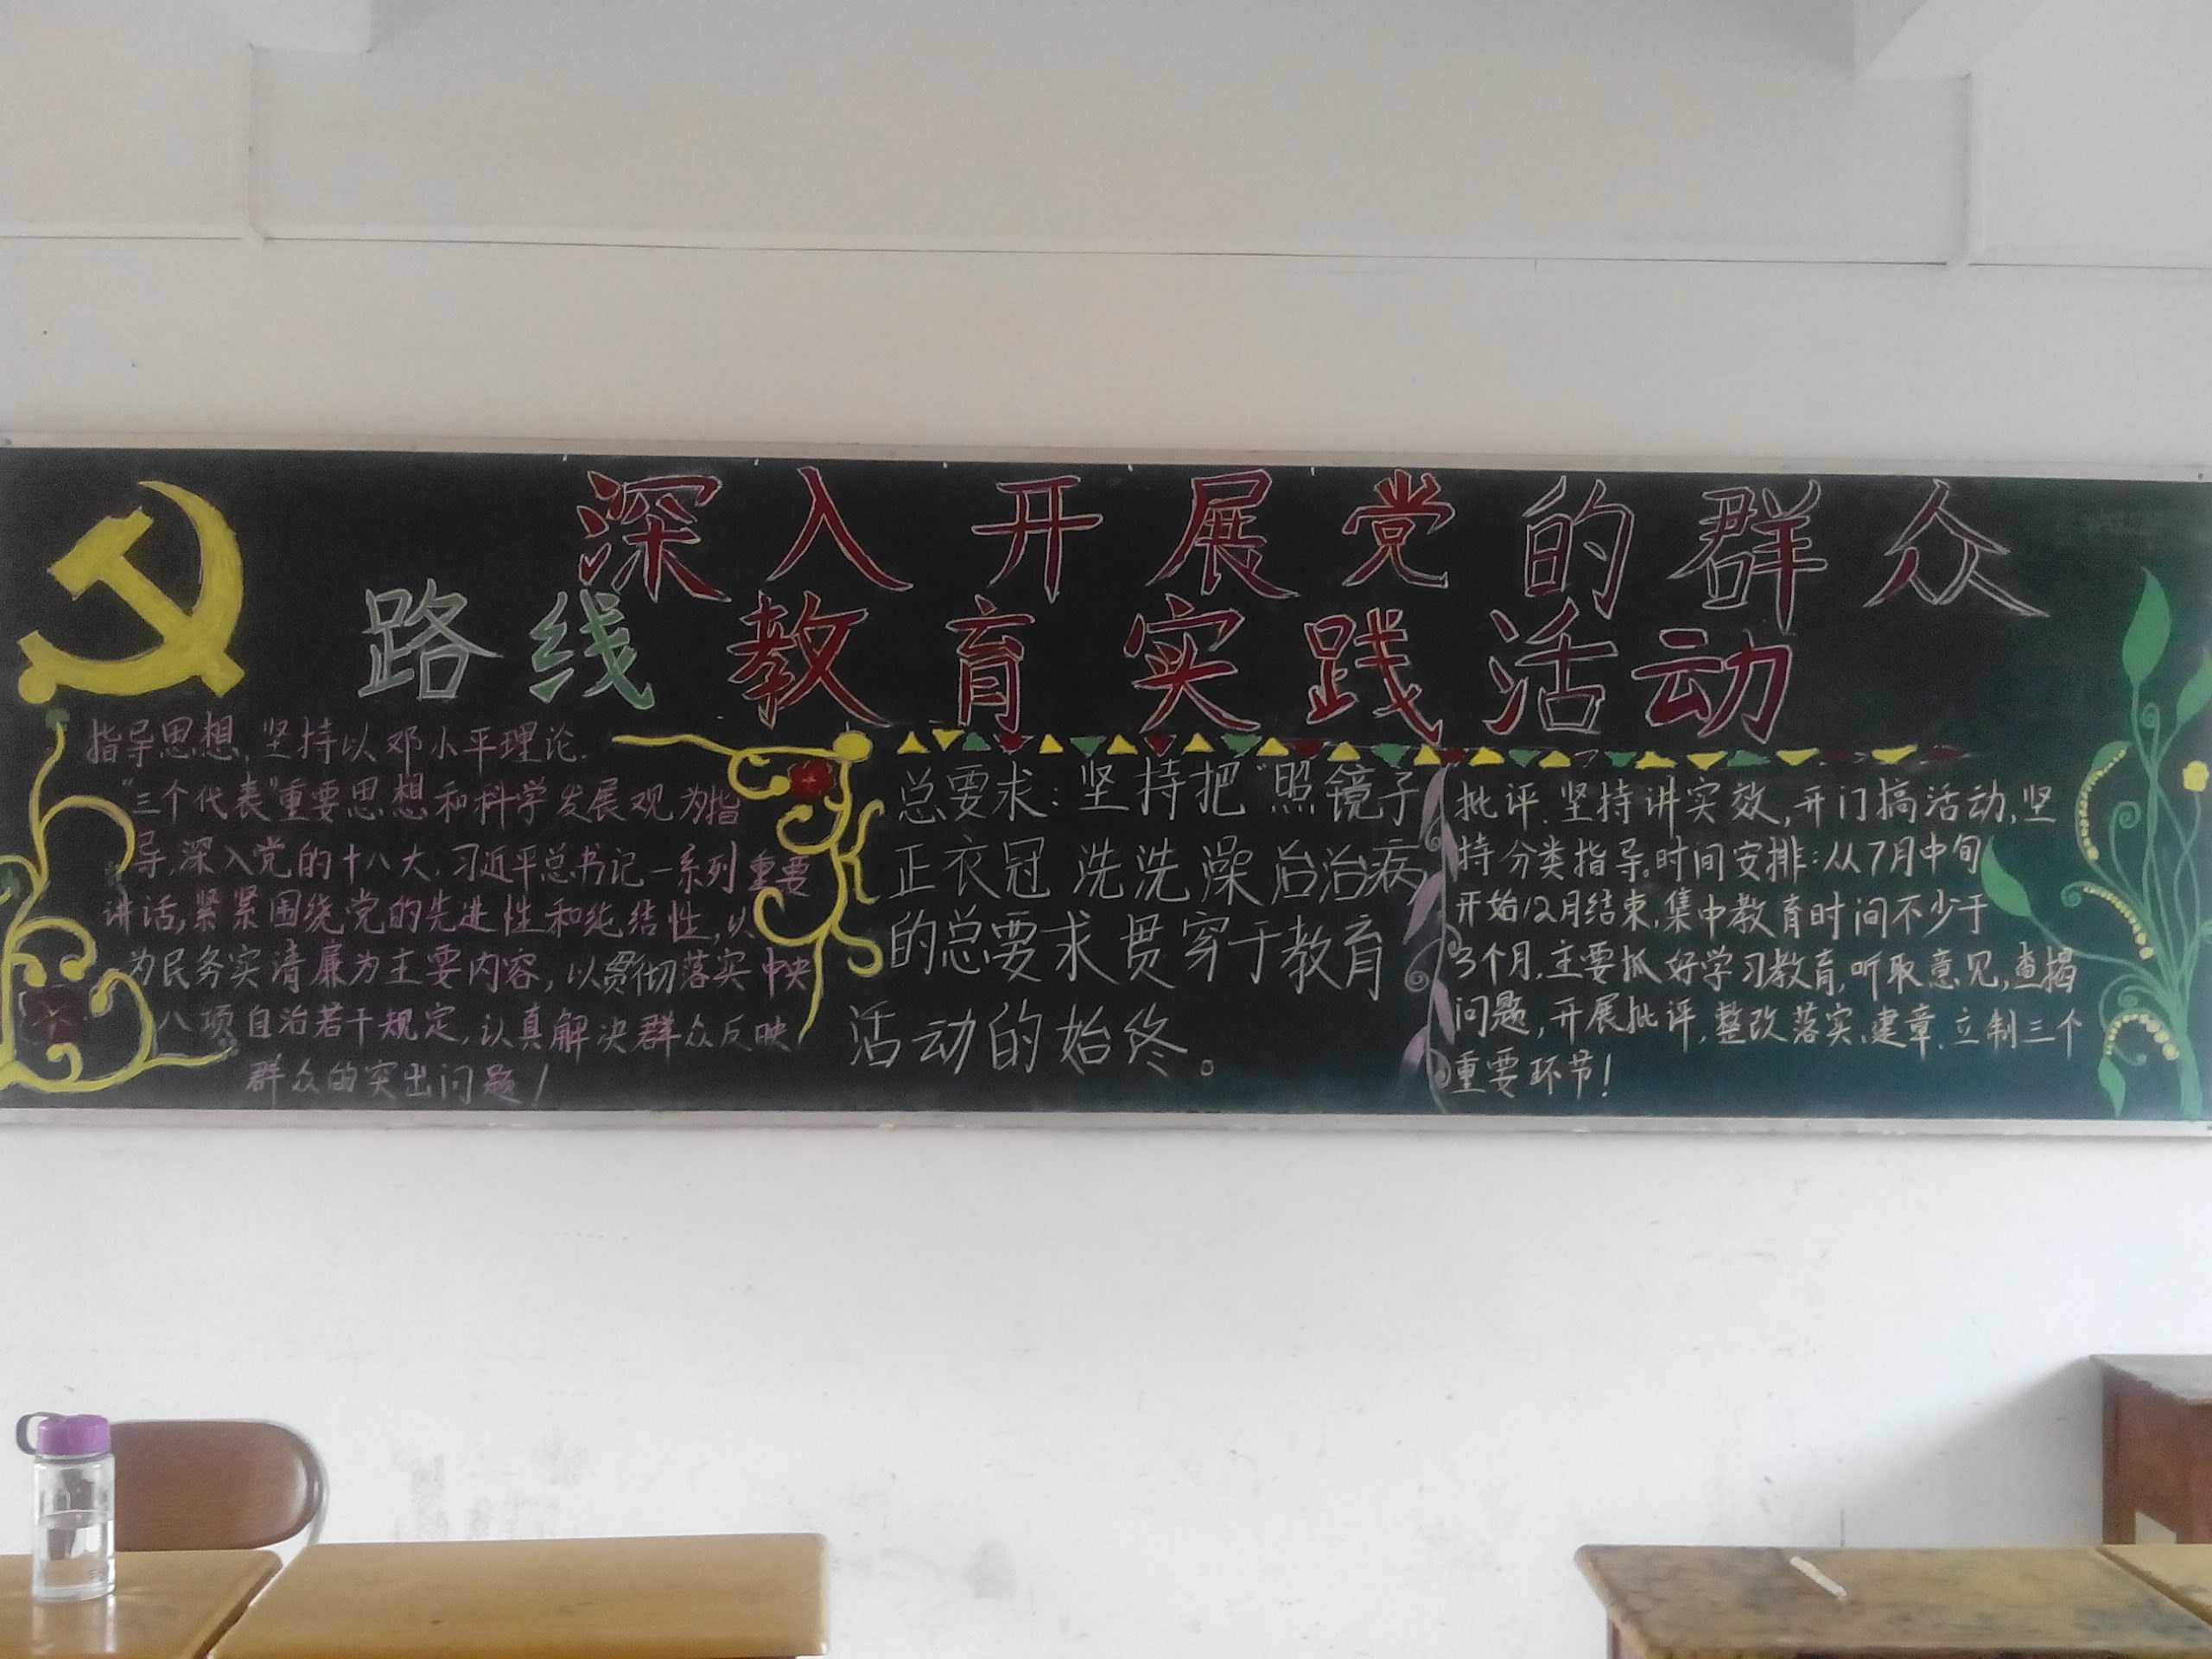 深入开展党的群众
路线教育实践活动
指导思想,坚持以邓小平理论.
"三个代表"重要思想和科学发展观为指
导,深入党的十八大.习近平总书记一系列重要
讲话,紧紧围绕党的先进性和纯结性,以
为民务实清廉为主要内容,以贯彻落实中央
八项自治若干规定,认真解决群众反映
群众的突出问题!
总要求:坚持把"照镜子
正衣冠 洗洗澡 治治病
的总要求贯穿于教育
活动的始终。
批评.坚持讲实效,开门搞活动,坚
持分类指导。时间安排:从7月中旬
开始12月结束,集中教育时间不少于
3个月,主要抓好学习教育,听取意见,查揭
问题,开展批评,整改落实,建章.立制三个
重要环节!